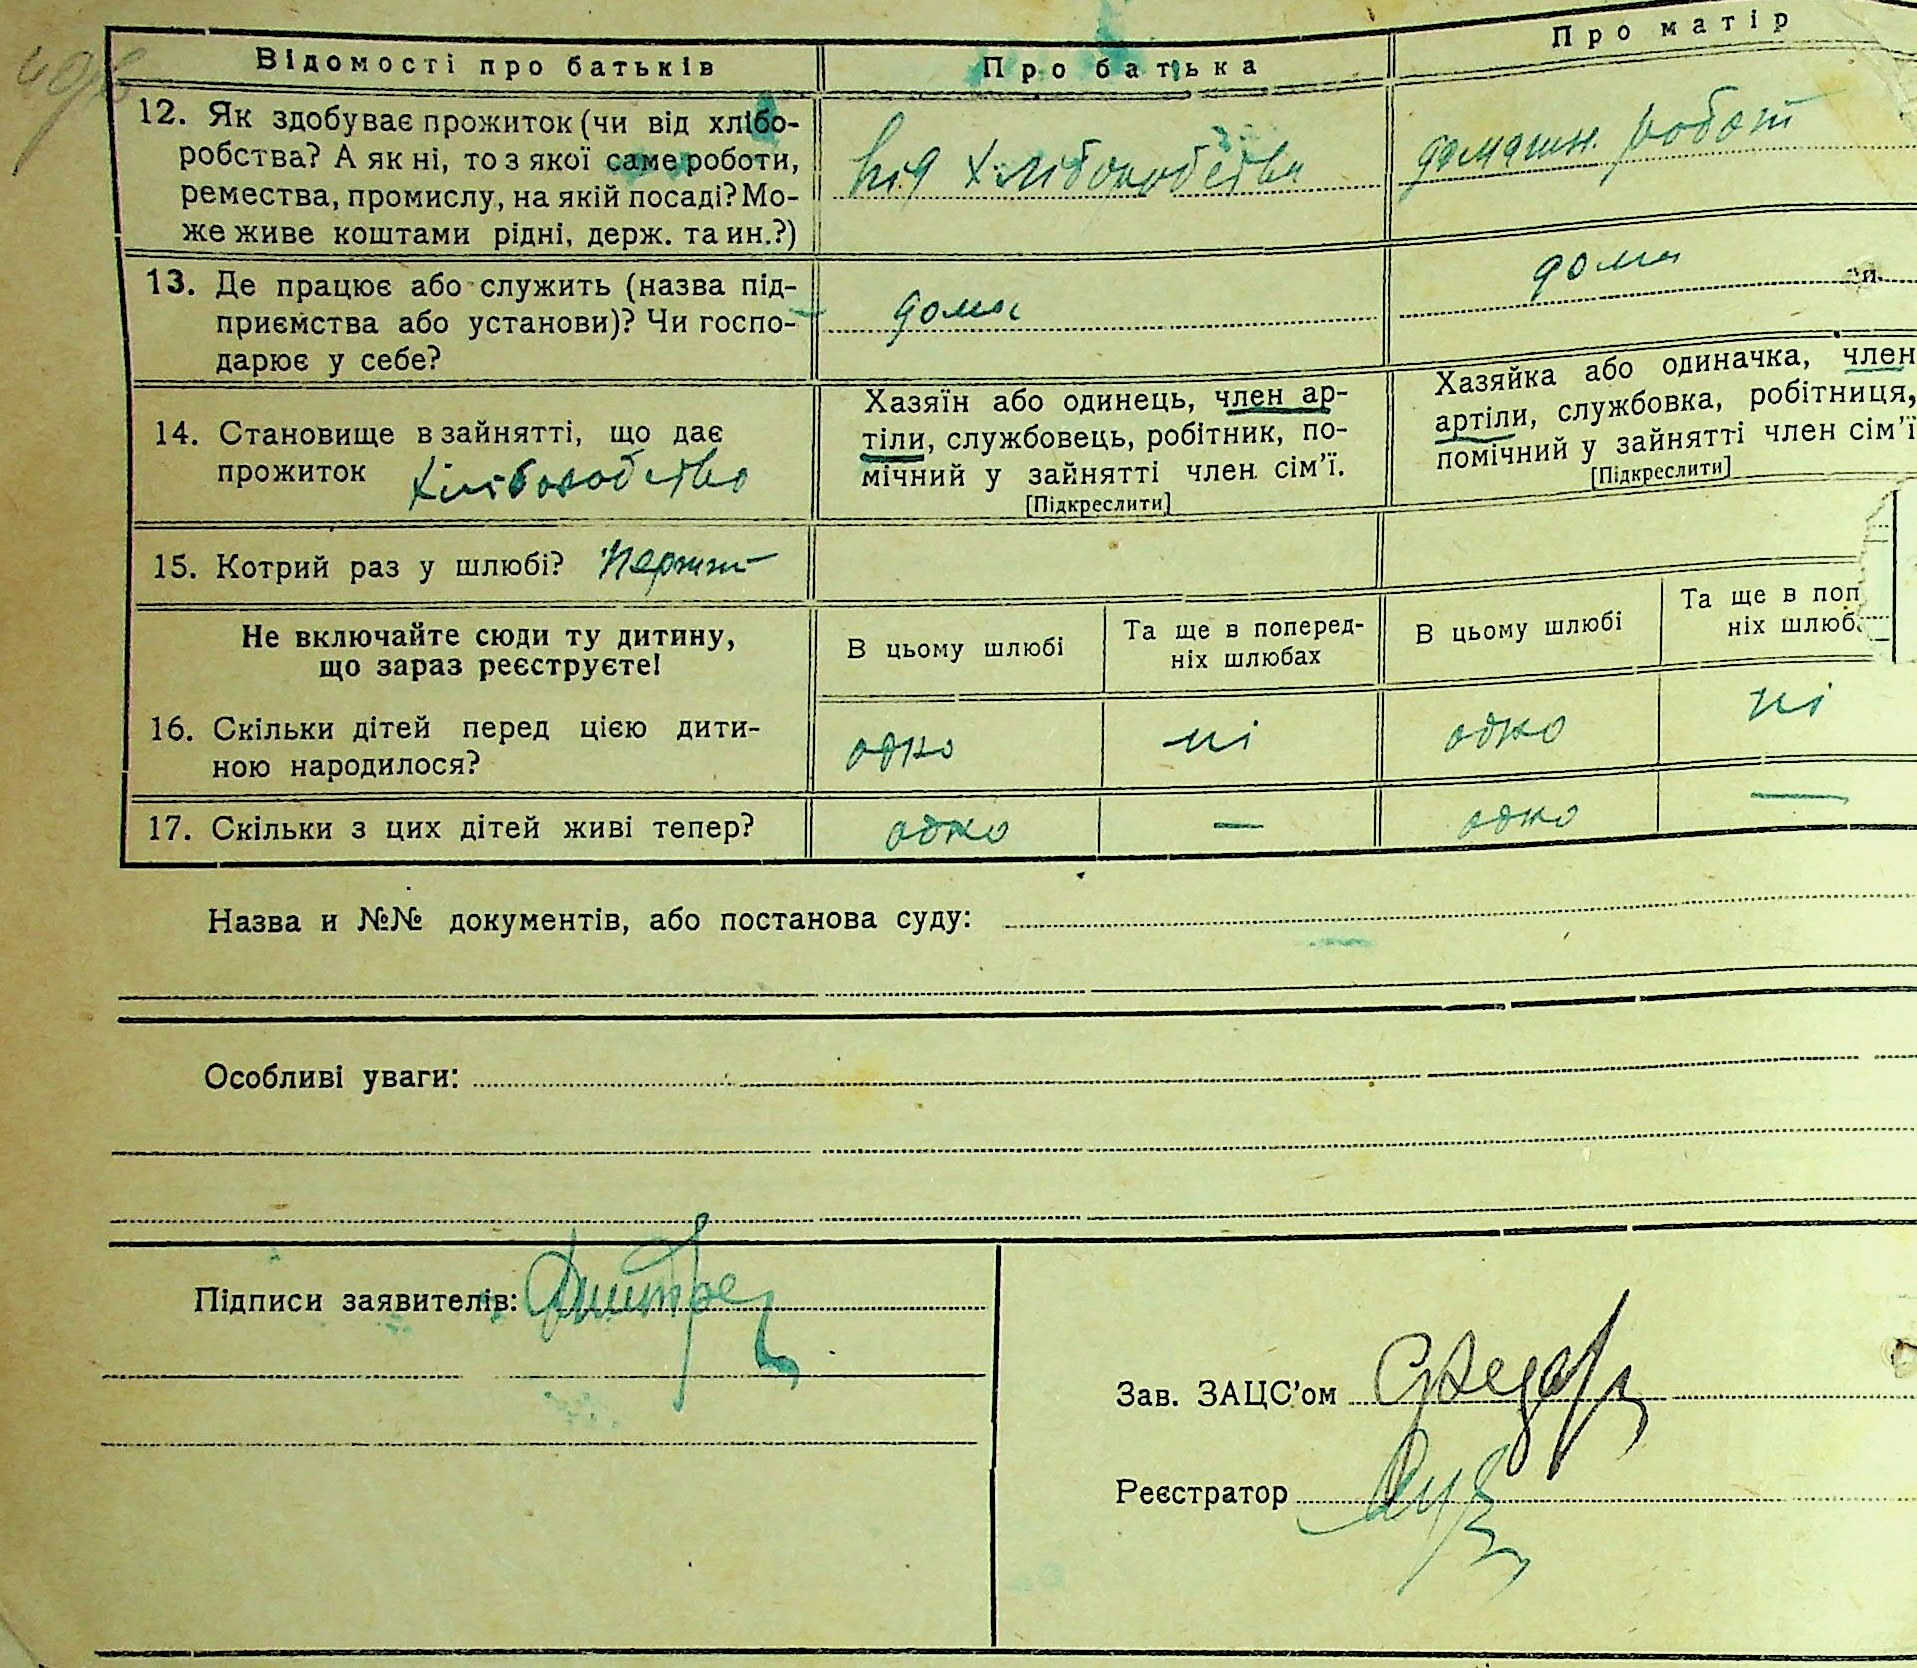 Відомості про батьків Про батька Про матір
12. Як здобуває прожиток (чи від хлібо-
робства? А як ні, то з якої саме роботи,
ремества, промислу, на якій посаді? Мо-
же живе коштами рідні, держ. та ин.?)
Від хліборобства
домашн. робот
13. Де працює або служить (назва під-
приємства або установи)? Чи госпо-
дарює у себе?
дома
дома
14. Становище в зайнятті, що дає
прожиток хліборобство
Хазяїн або одинець, член ар-
тіли, службовець, робітник, по-
мічний у зайнятті член сім'ї.
[Підкреслити]
Хазяйка або одиначка, член
артіли, службовка, робітниця,
помічний у зайнятті член сім'ї
[Підкреслити]
15. Котрий раз у шлюбі?
Не включайте сюди ту дитину,
що зараз реєструєте!
В цьому шлюбі
Та ще в поперед-
ніх шлюбах
В цьому шлюбі
Та ще в поп
ніх шлюб
16. Скільки дітей перед цією дити-
ною народилося?
одно ні одно ні
17. Скільки з цих дітей живі тепер? одно — одно —
Назва и №№ документів, або постанова суду:
Особливі уваги:
Підписи заявителів:
Зав. ЗАЦС'ом
Реєстратор